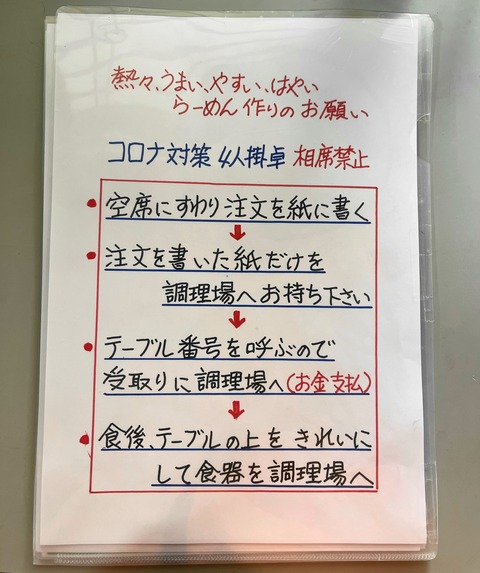 熱々、うまい、やすい、はやい
らーめん作りのお願い
コロナ対策 4人掛卓 相席禁止
• 空席にすわり注文を紙に書く
↓
• 注文を書いた紙だけを
調理場へお持ち下さい
↓
• テーブル番号を呼ぶので
受取りに調理場へ(お金支払)
↓
• 食後、テーブルの上をきれいに
して食器を調理場へ